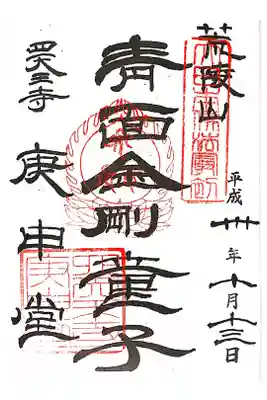 荒陵山
平成卅年十月十三日
青面金剛童子
四天王寺
庚申堂